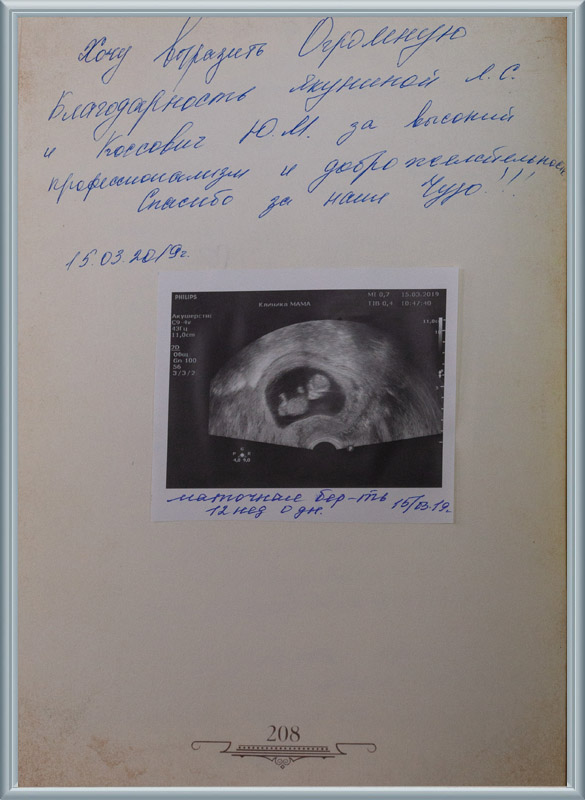 Хочу Выразить Огромную
Благодарность Якуниной Л.С.
и Коссович Ю.М. за высокий
профессионализм и доброжелательность
Спасибо за наше Чудо!!!
15.03.2019г.
PHILIPS
Клиника МАМА
MI 0,7 15/03/2019
TIb 0,4 10:47:40
Акушерство
C9-4v
43Гц
11,0cm
2D
Общ
Gn 100
56
3/3/2
11,0
маточная бер-ть 15/03.19г
12 нед 0 дн.
208